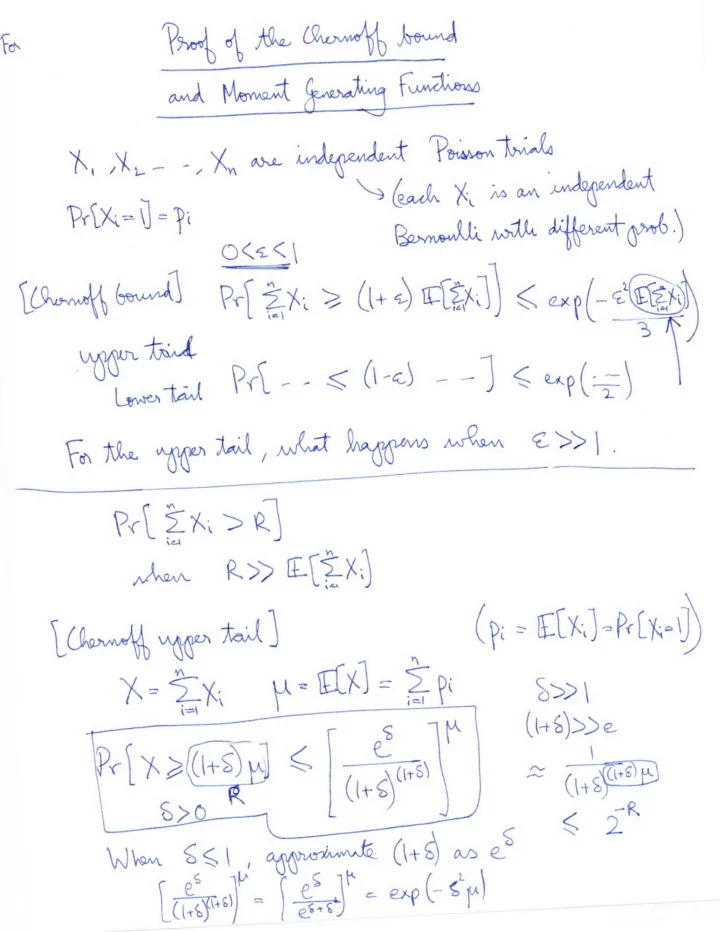 For
Proof of the Chernoff bound
and Moment Generating Functions
X₁, X₂ - -, Xₙ are independent Poisson trials
Pr[Xᵢ=1] = pᵢ
→ (each Xᵢ is an independent
Bernoulli with different prob.)
0<ε<1
[Chernoff bound] Pr[∑ᵢ₌₁ⁿ Xᵢ ≥ (1+ε) 𝔼[∑ᵢ₌₁ⁿ Xᵢ]] ≤ exp(-ε² 𝔼[∑ᵢ₌₁ⁿ Xᵢ] / 3)
upper
Lower tail Pr[ - - ≤ (1-ε) - - ] ≤ exp(-··/2)
For the upper tail, what happens when ε>>1.
Pr[∑ᵢ₌₁ⁿ Xᵢ > R]
when R>> 𝔼[∑ᵢ₌₁ⁿ Xᵢ]
[Chernoff upper tail] (pᵢ = 𝔼[Xᵢ] = Pr[Xᵢ=1])
X = ∑ᵢ₌₁ⁿ Xᵢ μ = 𝔼[X] = ∑ᵢ₌₁ⁿ pᵢ
δ>>1
(1+δ)>>e
Pr[X ≥ (1+δ)μ] ≤ [e^δ / (1+δ)^(1+δ)]^μ
R
δ>0
≈ 1 / (1+δ)^((1+δ)μ)
≤ 2^-R
When δ≤1, approximate (1+δ) as e^δ
[e^δ / (1+δ)^(1+δ)]^μ = [e^δ / e^(δ+δ²)]^μ = exp(-δ²μ)